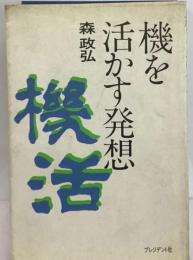 機を
活かす発想
森 政弘
機活
プレジデント社